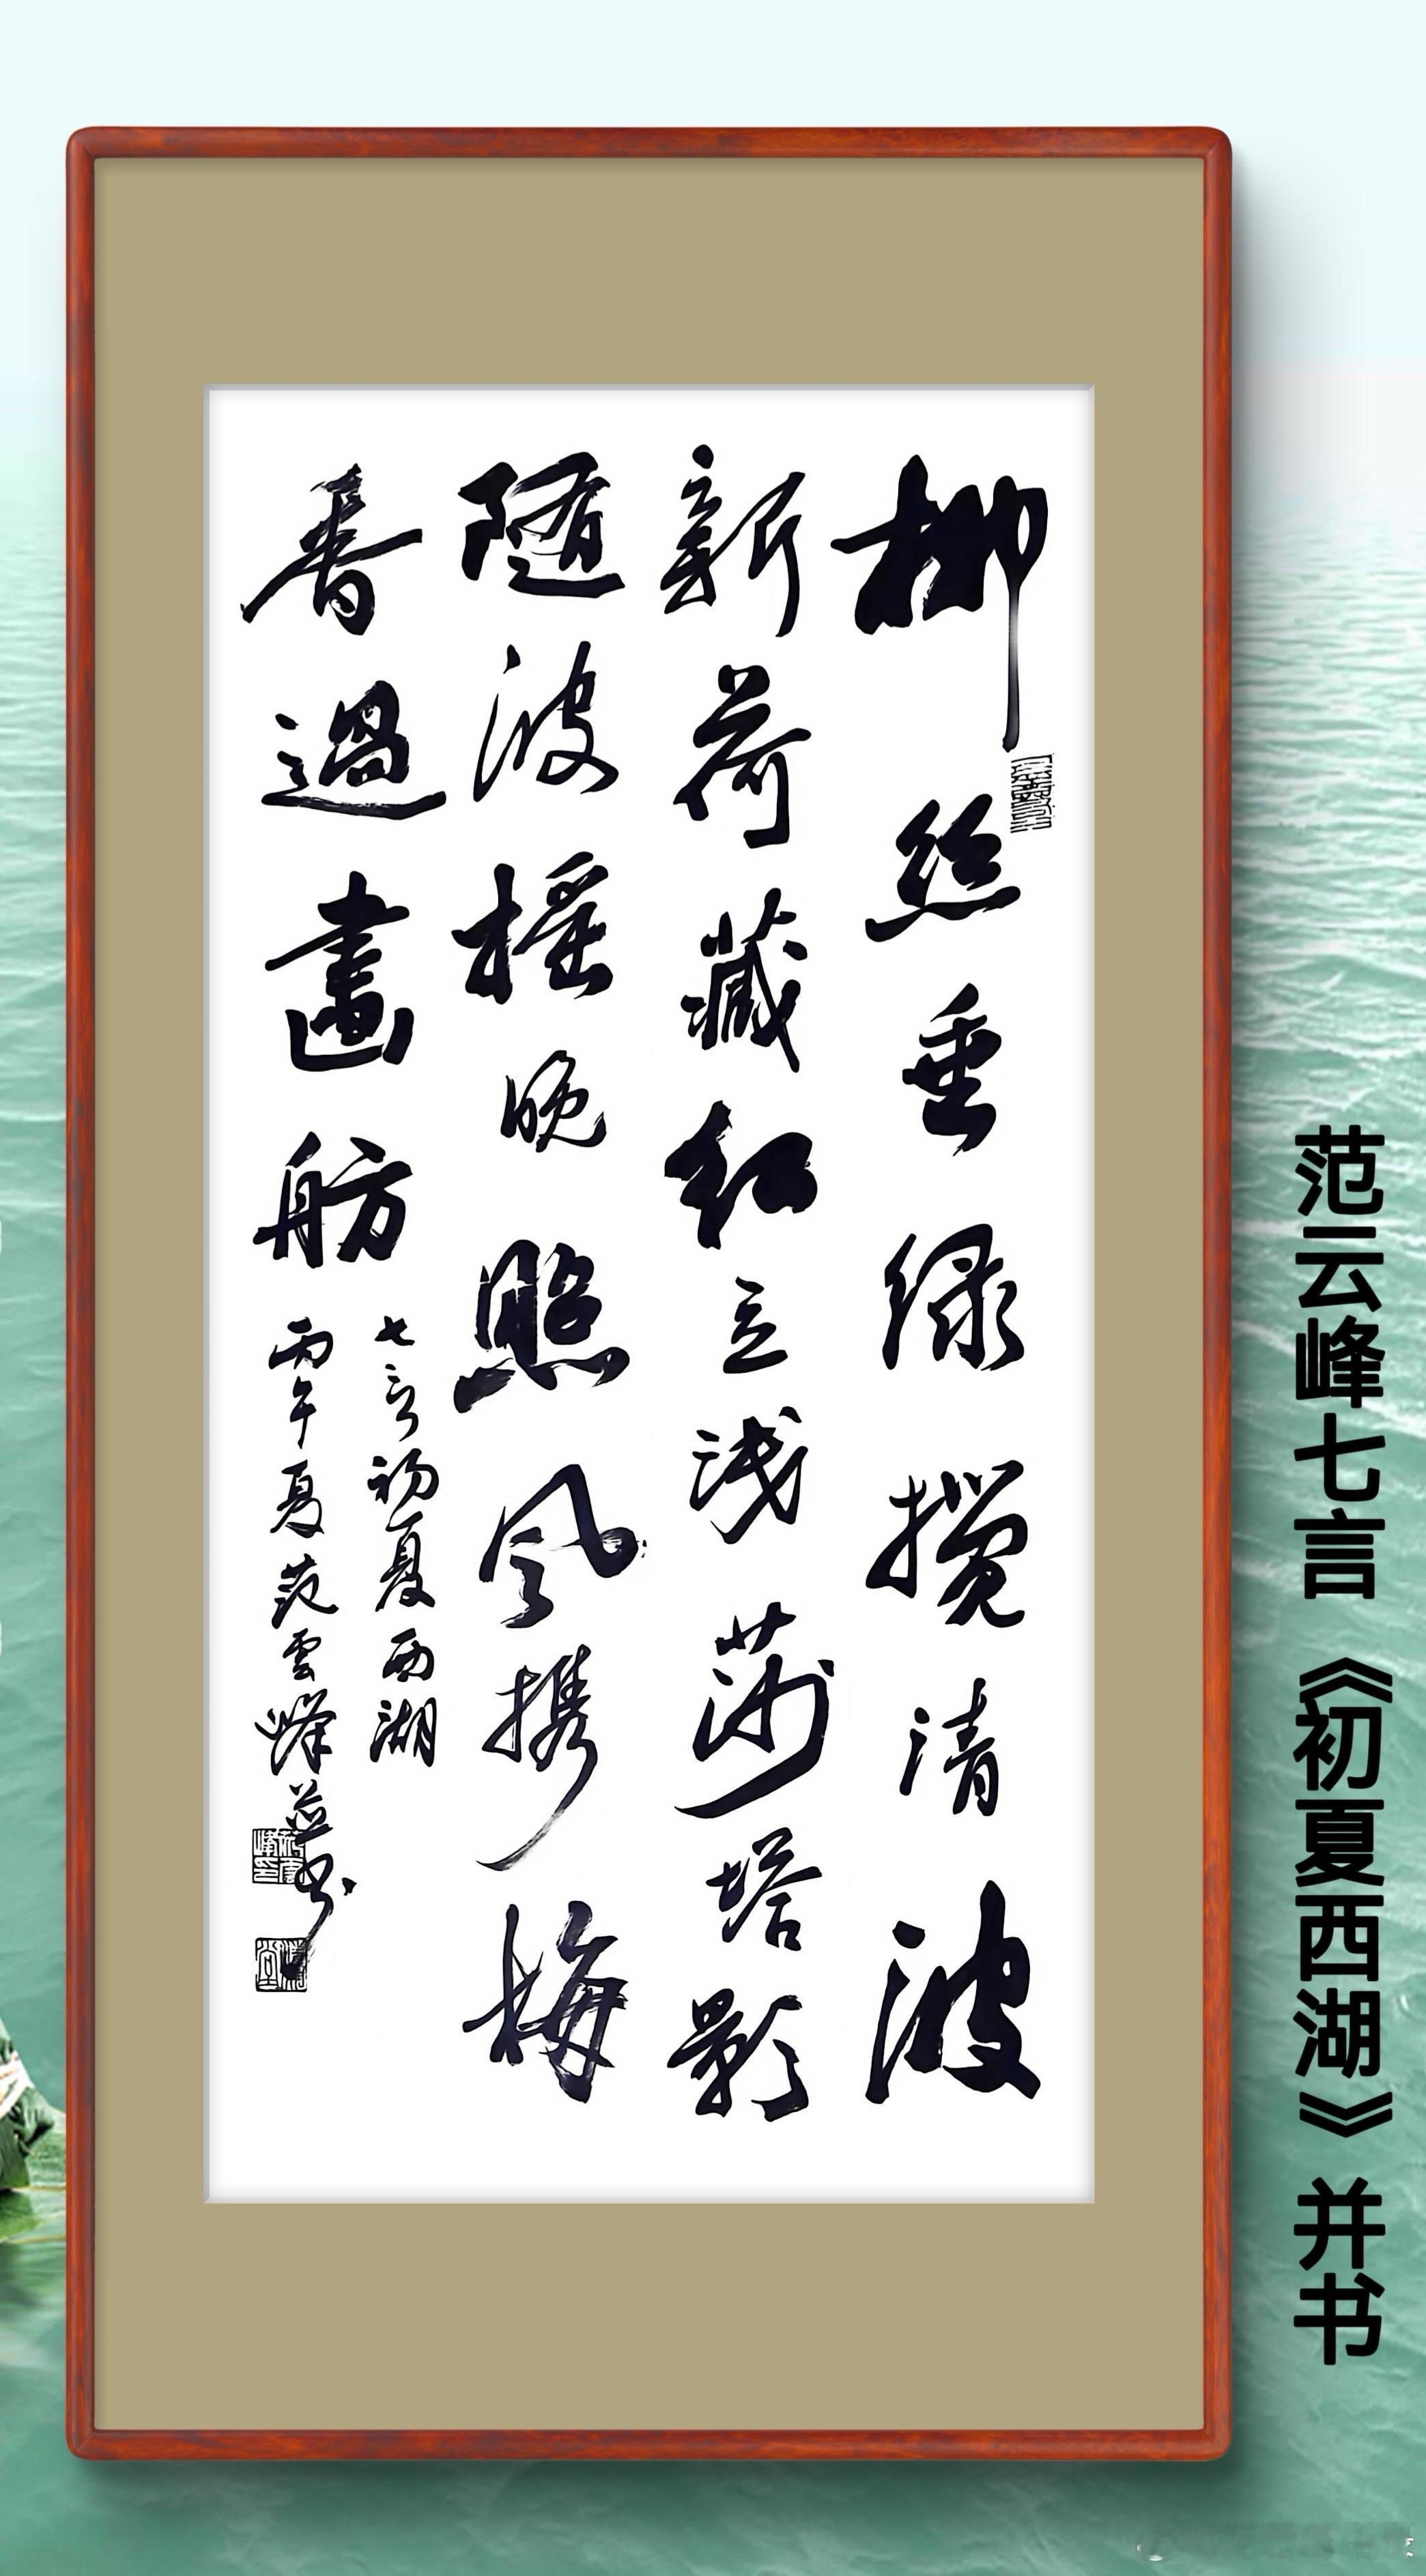 柳丝垂绿搅清波
新荷藏红立浅莎塔影
随波摇晚照风携梅
香過畫舫
七言初夏西湖
丙午夏范雲峰並书
范云峰七言《初夏西湖》并书